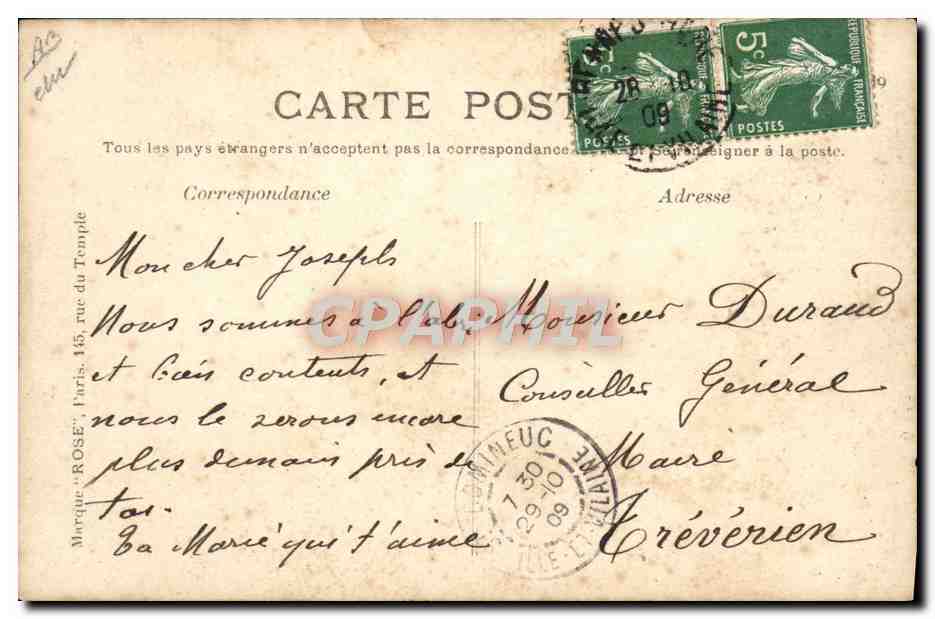 AB
CARTE POST
Tous les pays étrangers n'acceptent pas la correspondance Se renseigner à la poste.
Correspondance
Adresse
Marque "ROSE", Paris, 145, rue du Temple
Mon cher Joseph
Nous sommes a l'abri
et bien contents, et
nous le serons encore
plus demain près de
toi.
Ta Marie qui t'aime
Monsieur Durand
Conseiller Général
Maire
Trévérien
CPAPHIL
5c
POSTES
5c
REPUBLIQUE FRANÇAISE
POSTES
28 10
09
ET VILAINE
MINEUC
7 30
29-10
09
ILLE-ET-VILAINE